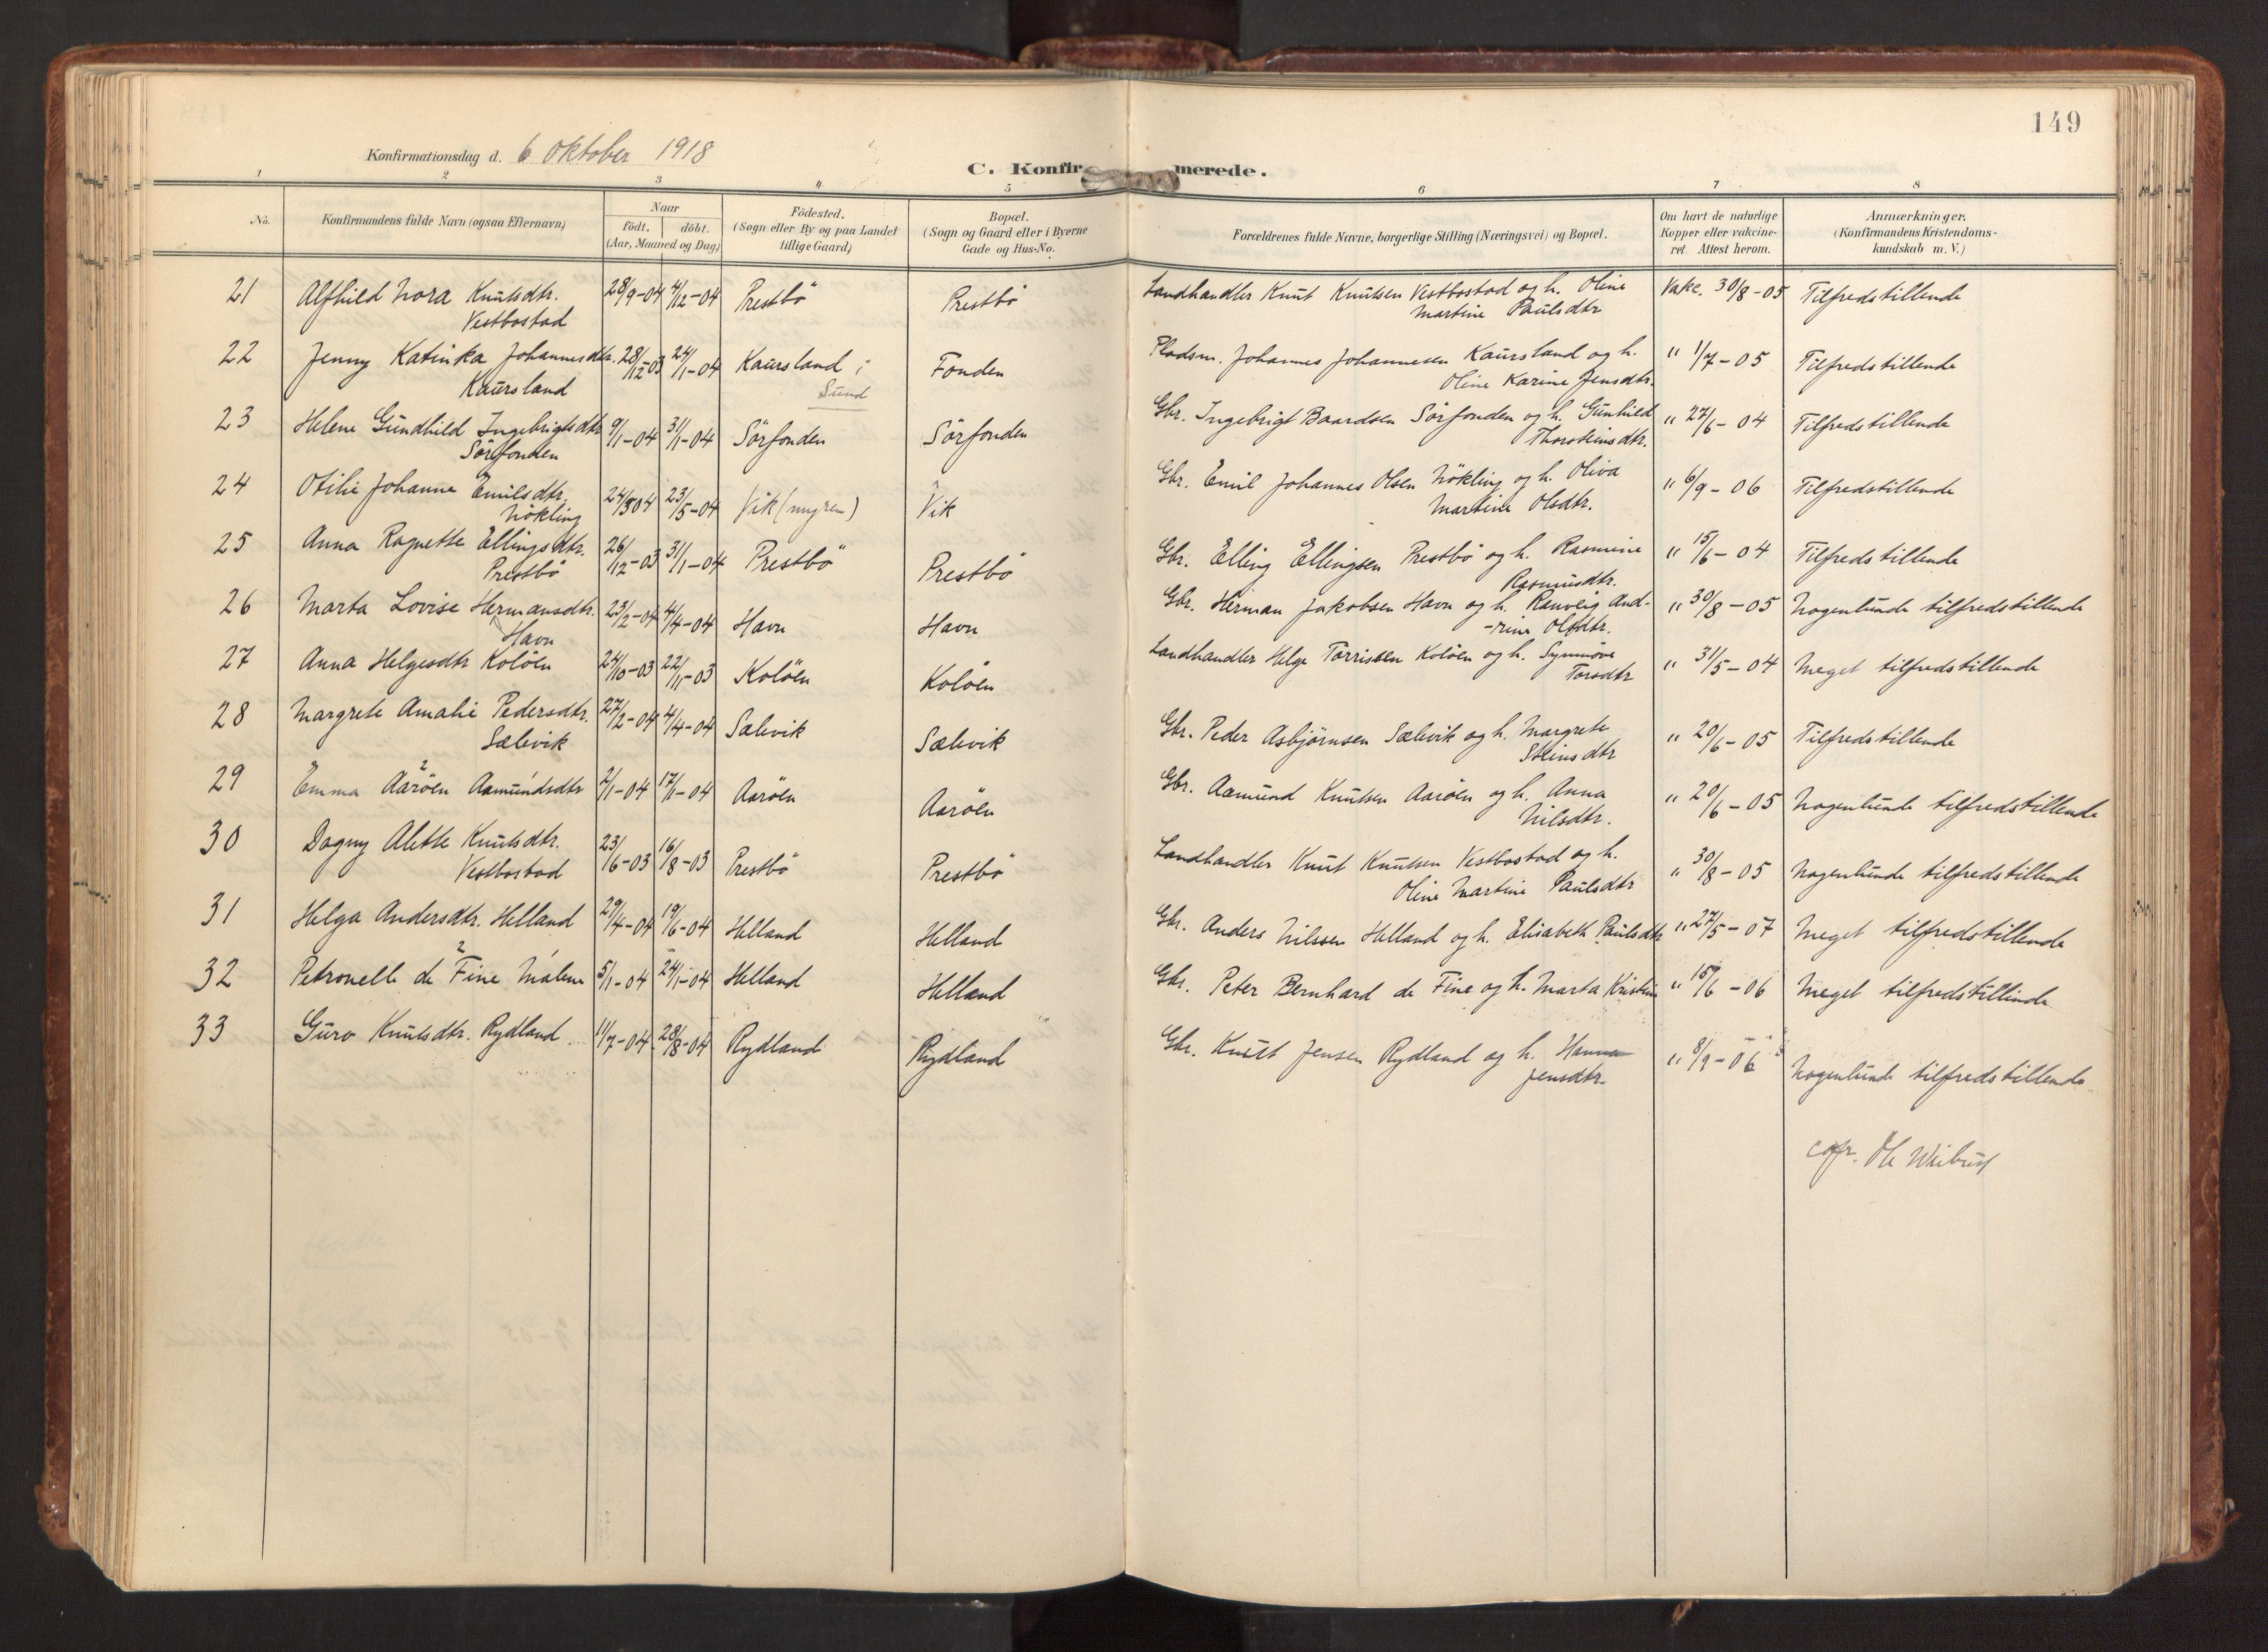 149
Konfirmationsdag d. 6 oktober 1918
C. Konfirmerede.
1 2 3 4 5 6 7 8
No.
Konfirmandens fulde Navn (ogsaa Efternavn)
Naar
födt. döbt.
(Aar, Maaned og Dag)
Födested.
(Sogn eller By og paa Landet
tillige Gaard)
Bopæl.
(Sogn og Gaard eller i Byerne
Gade og Hus-No.
Forældrenes fulde Navne, borgerlige Stilling (Næringsvei) og Bopæl.
Om havt de naturlige
Kopper eller vakcine-
ret. Attest herom.
Anmærkninger.
(Konfirmandens Kristendoms-
kundskab m. V.)
21 Alfhild Nora Knutsdtr. 28/9-04 4/12-04 Prestbö Prestbö Landhandler Knut Knutsen Vestbostad og h. Oline Vakc. 30/8-05 Tilfredstillende
Vestbostad Martine Paulsdtr
22 Jenny Katinka Johannesdtr. 28/12-03 24/1-04 Kaursland i Fonden Pladsm. Johannes Johannesen Kaursland og h. " 1/7-05 Tilfredstillende
Kaursland Sund Oline Karine Jensdtr.
23 Helene Gundhild Ingebrigtsdtr 9/1-04 31/1-04 Sörfonden Sörfonden Gbr. Ingebrigt Baardsen Sörfonden og h. Gunhild " 27/6-04 Tilfredstillende
Sörfonden Thorsteinsdtr.
24 Otilie Johanne Emilsdtr. 24/3 04 23/5-04 Vik (myren) Vik Gbr. Emil Johannes Olsen Nökling og h. Oliva " 6/9-06 Tilfredstillende
Nökling Martine Olsdtr.
25 Anna Ragnette Ellingsdtr. 26/12-03 31/1-04 Prestbö Prestbö Gbr. Elling Ellingsen Prestbö og h. Rasmine " 15/6-04 Tilfredstillende
Prestbö Rasmusdtr.
26 Marta Lovise Hermansdtr. 23/2-04 4/4-04 Havn Havn Gbr. Herman Jakobsen Havn og h. Ranveig And- " 30/8-05 Nogenlunde tilfredstillende
Havn -rine Olsdtr.
27 Anna Helgesdtr Kolöen 24/10-03 22/11-03 Kolöen Kolöen Landhandler Helge Torrissen Kolöen og h. Synnöve " 31/5-04 Meget tilfredstillende
Torsdtr
28 Margrete Amalie Pedersdtr. 27/2-04 4/4-04 Sælevik Sælevik Gbr. Peder Asbjörnsen Sælevik og h. Margrete " 20/6-05 Tilfredstillende
Sælevik Steinsdtr
29 Emma Aaröen Aamundsdtr 2/1-04 17/1-04 Aaröen Aaröen Gbr. Aamund Knutsen Aaröen og h. Anna " 20/6-05 Nogenlunde tilfredstillende
2 Nilsdtr.
30 Dagny Alette Knutsdtr. 23/6-03 16/8-03 Prestbö Prestbö Landhandler Knut Knutsen Vestbostad og h. " 30/8-05 Nogenlunde tilfredstillende
Vestbostad Oline Martine Paulsdtr
31 Helga Andersdtr. Helland 29/4-04 19/6-04 Helland Helland Gbr. Anders Nilssen Helland og h. Elisabeth Paulsdtr " 27/5-07 Meget tilfredstillende
2
32 Petronelle de Fine Malene 5/1-04 24/1-04 Helland Helland Gbr. Peter Bernhard de Fine og h. Marta Kristine " 15/6-06 Meget tilfredstillende
33 Guro Knutsdtr. Rydland. 11/7-04 28/8-04 Rydland Rydland Gbr. Knut Jensen Rydland og h. Hanna " 8/9-06 Nogenlunde tilfredstillende
Jensdtr.